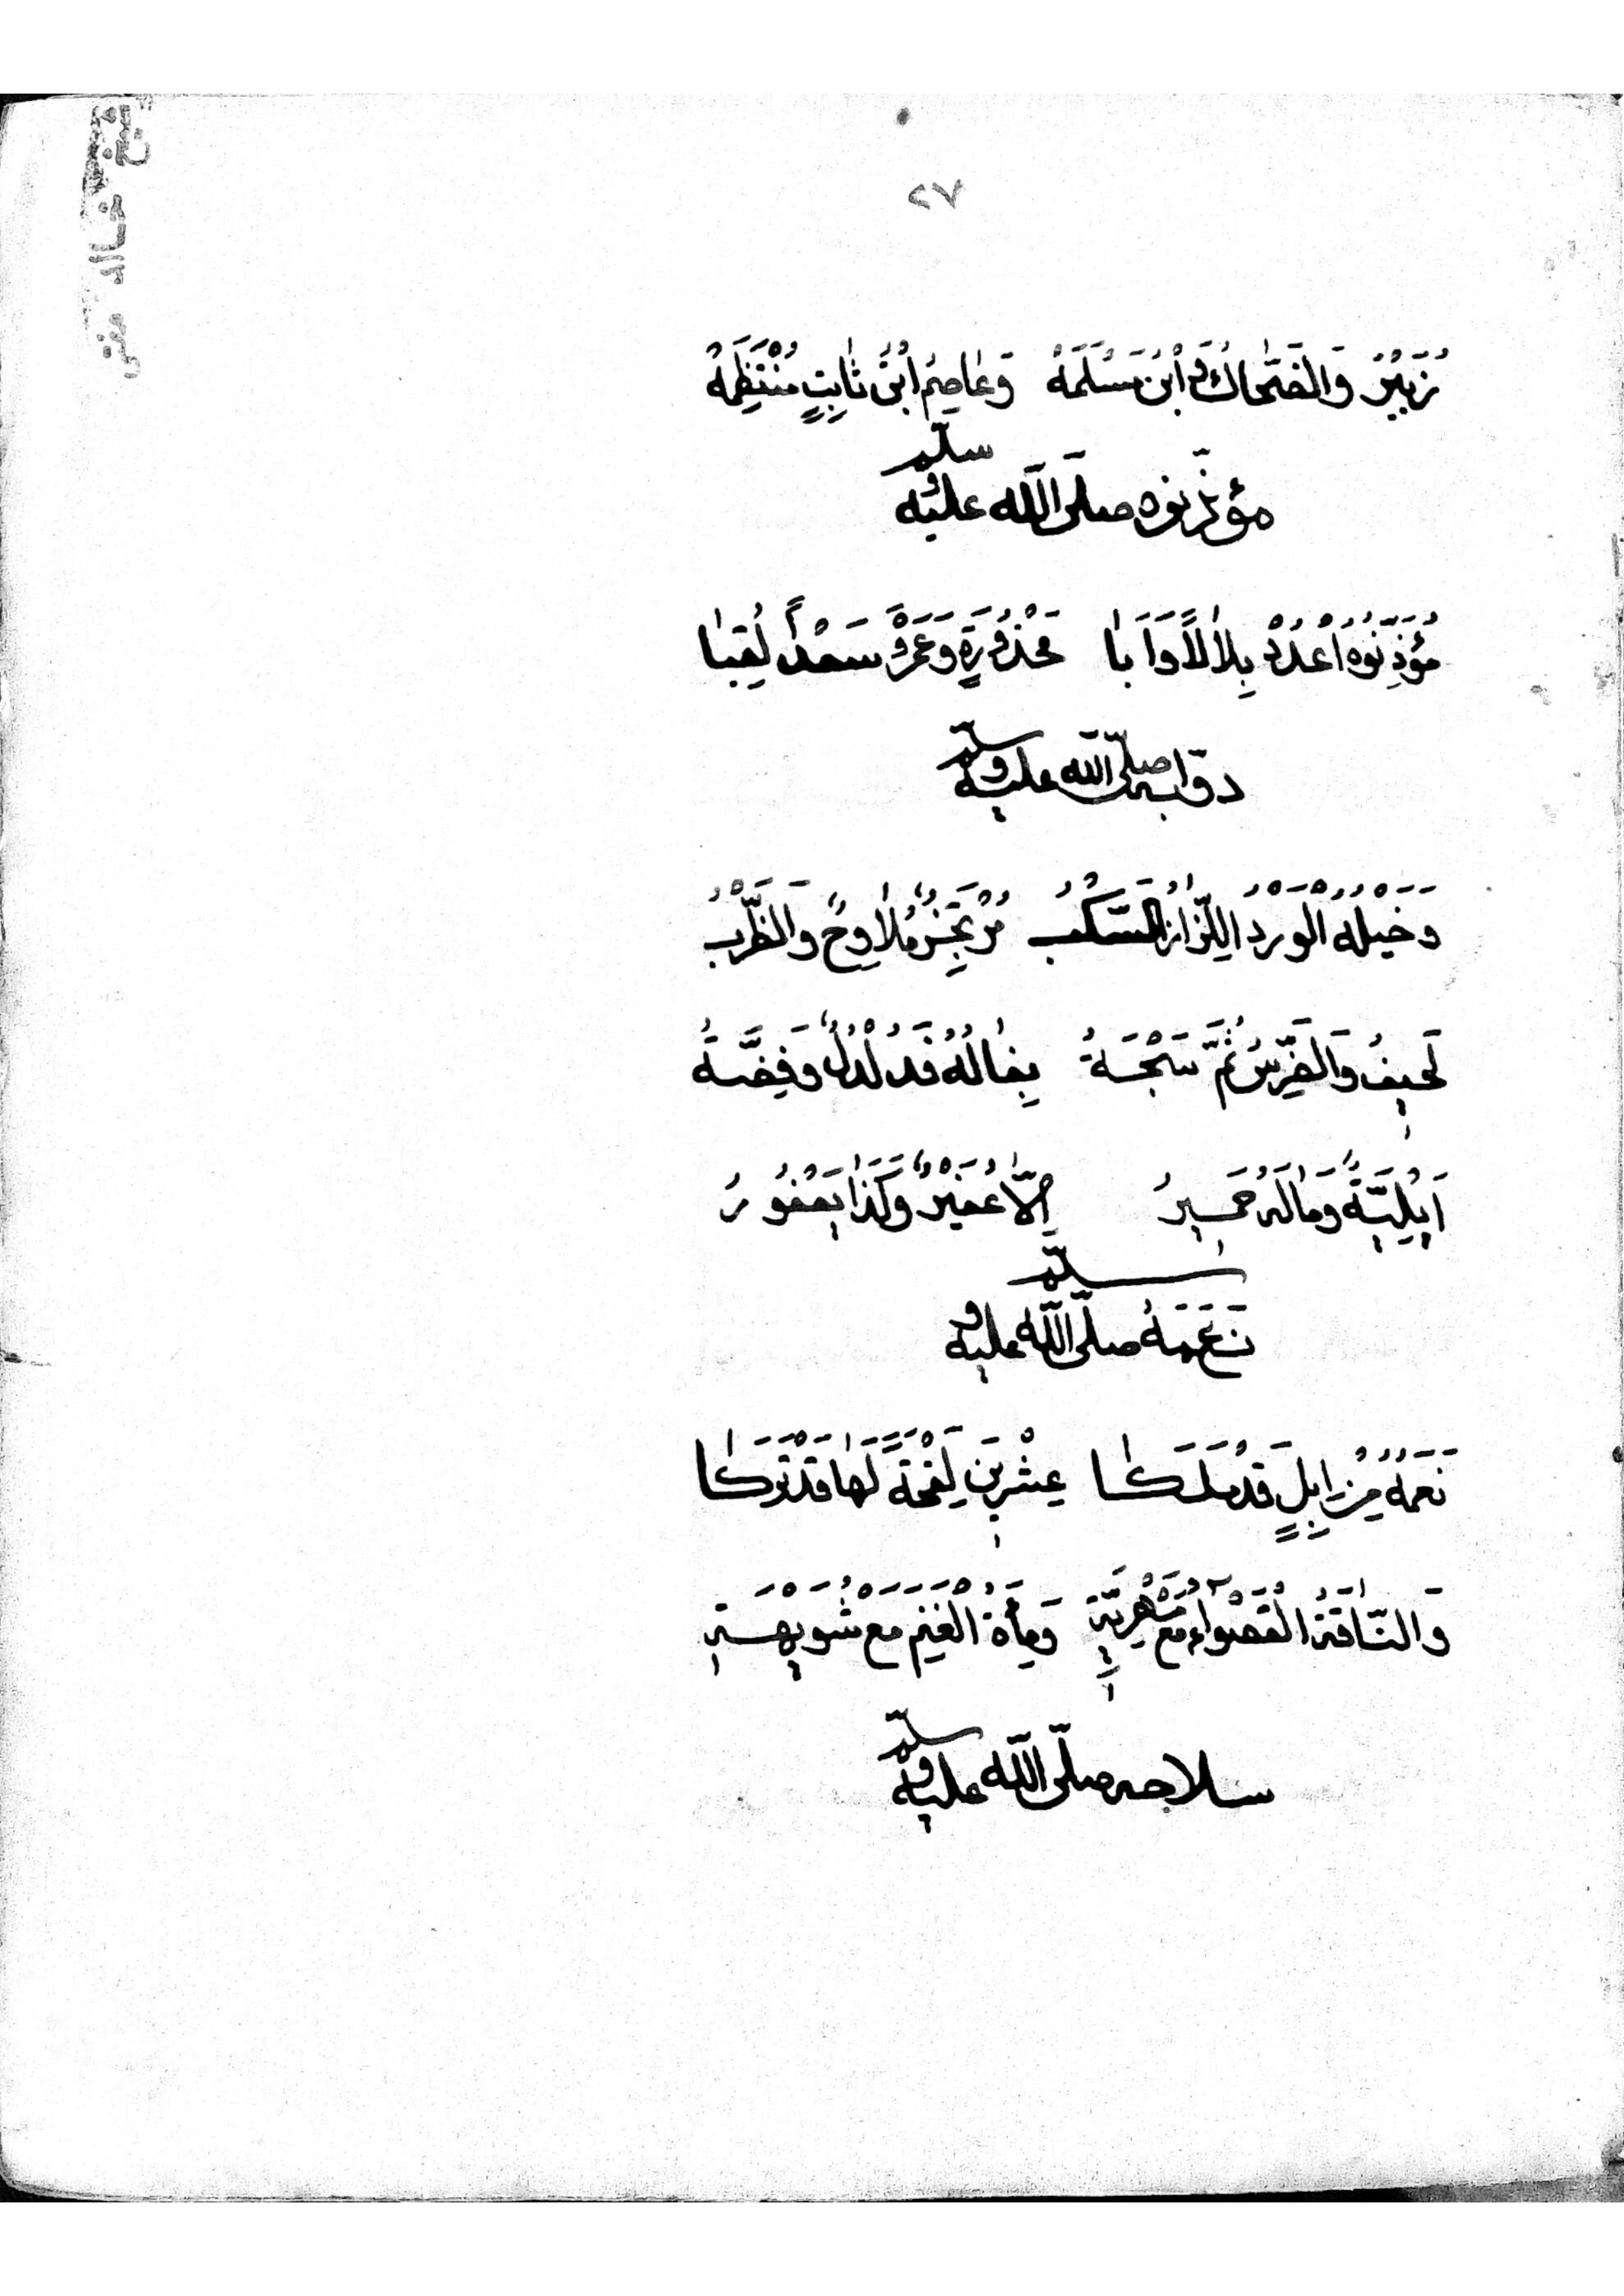 ٢٧
زُبَيْرُ وَالضَّحَاكُ وَابْنُ مَسْلَمَهْ وَعَاصِمُ ابْنُ ثَابِتٍ مُنْتَظِمَهْ
مؤذّنوه صلّى اللّه عليه وسلّم
مُؤَذِّنُوهُ اُعْدُدْ بِلَالًا وَاَبَا مَحْذُورَةٍ وَعَمْرٌو سَعْدًا لُقِبَا
دوّابه صلّى اللّه عليه وسلّم
وَخَيْلُهُ الْوَرْدُ اللِّزَازُ السَّكْبُ مُرْتَجِزُ مُلَاوِحٌ وَالظَّرْبُ
لَحِيفُ وَالضَّرِسُ ثُمَّ سَبْحَةُ بِغَالُهُ فَدُلْدُلٌ وَفِضَّةُ
اَيْلِيَّةً وَمَالَهُ حَمِيرُ اِلَّا عُفَيْرٌ وَكَذَا يَعْفُورُ
نَعَمُهُ صلّى اللّه عليه وسلّم
نَعَمُهُ مِنْ اِبِلٍ قَدْ مَلَكَا عِشْرِينَ لِقْحَةً لَهَا قَدْ تَرَكَا
وَالنَّاقَةُ الْقَصْوَاءُ مَعْ مَهْرِيَّةِ وَمِأَةُ الْغَنَمِ مَعْ شُوَيْهَةِ
سلاحه صلّى اللّه عليه وسلّم